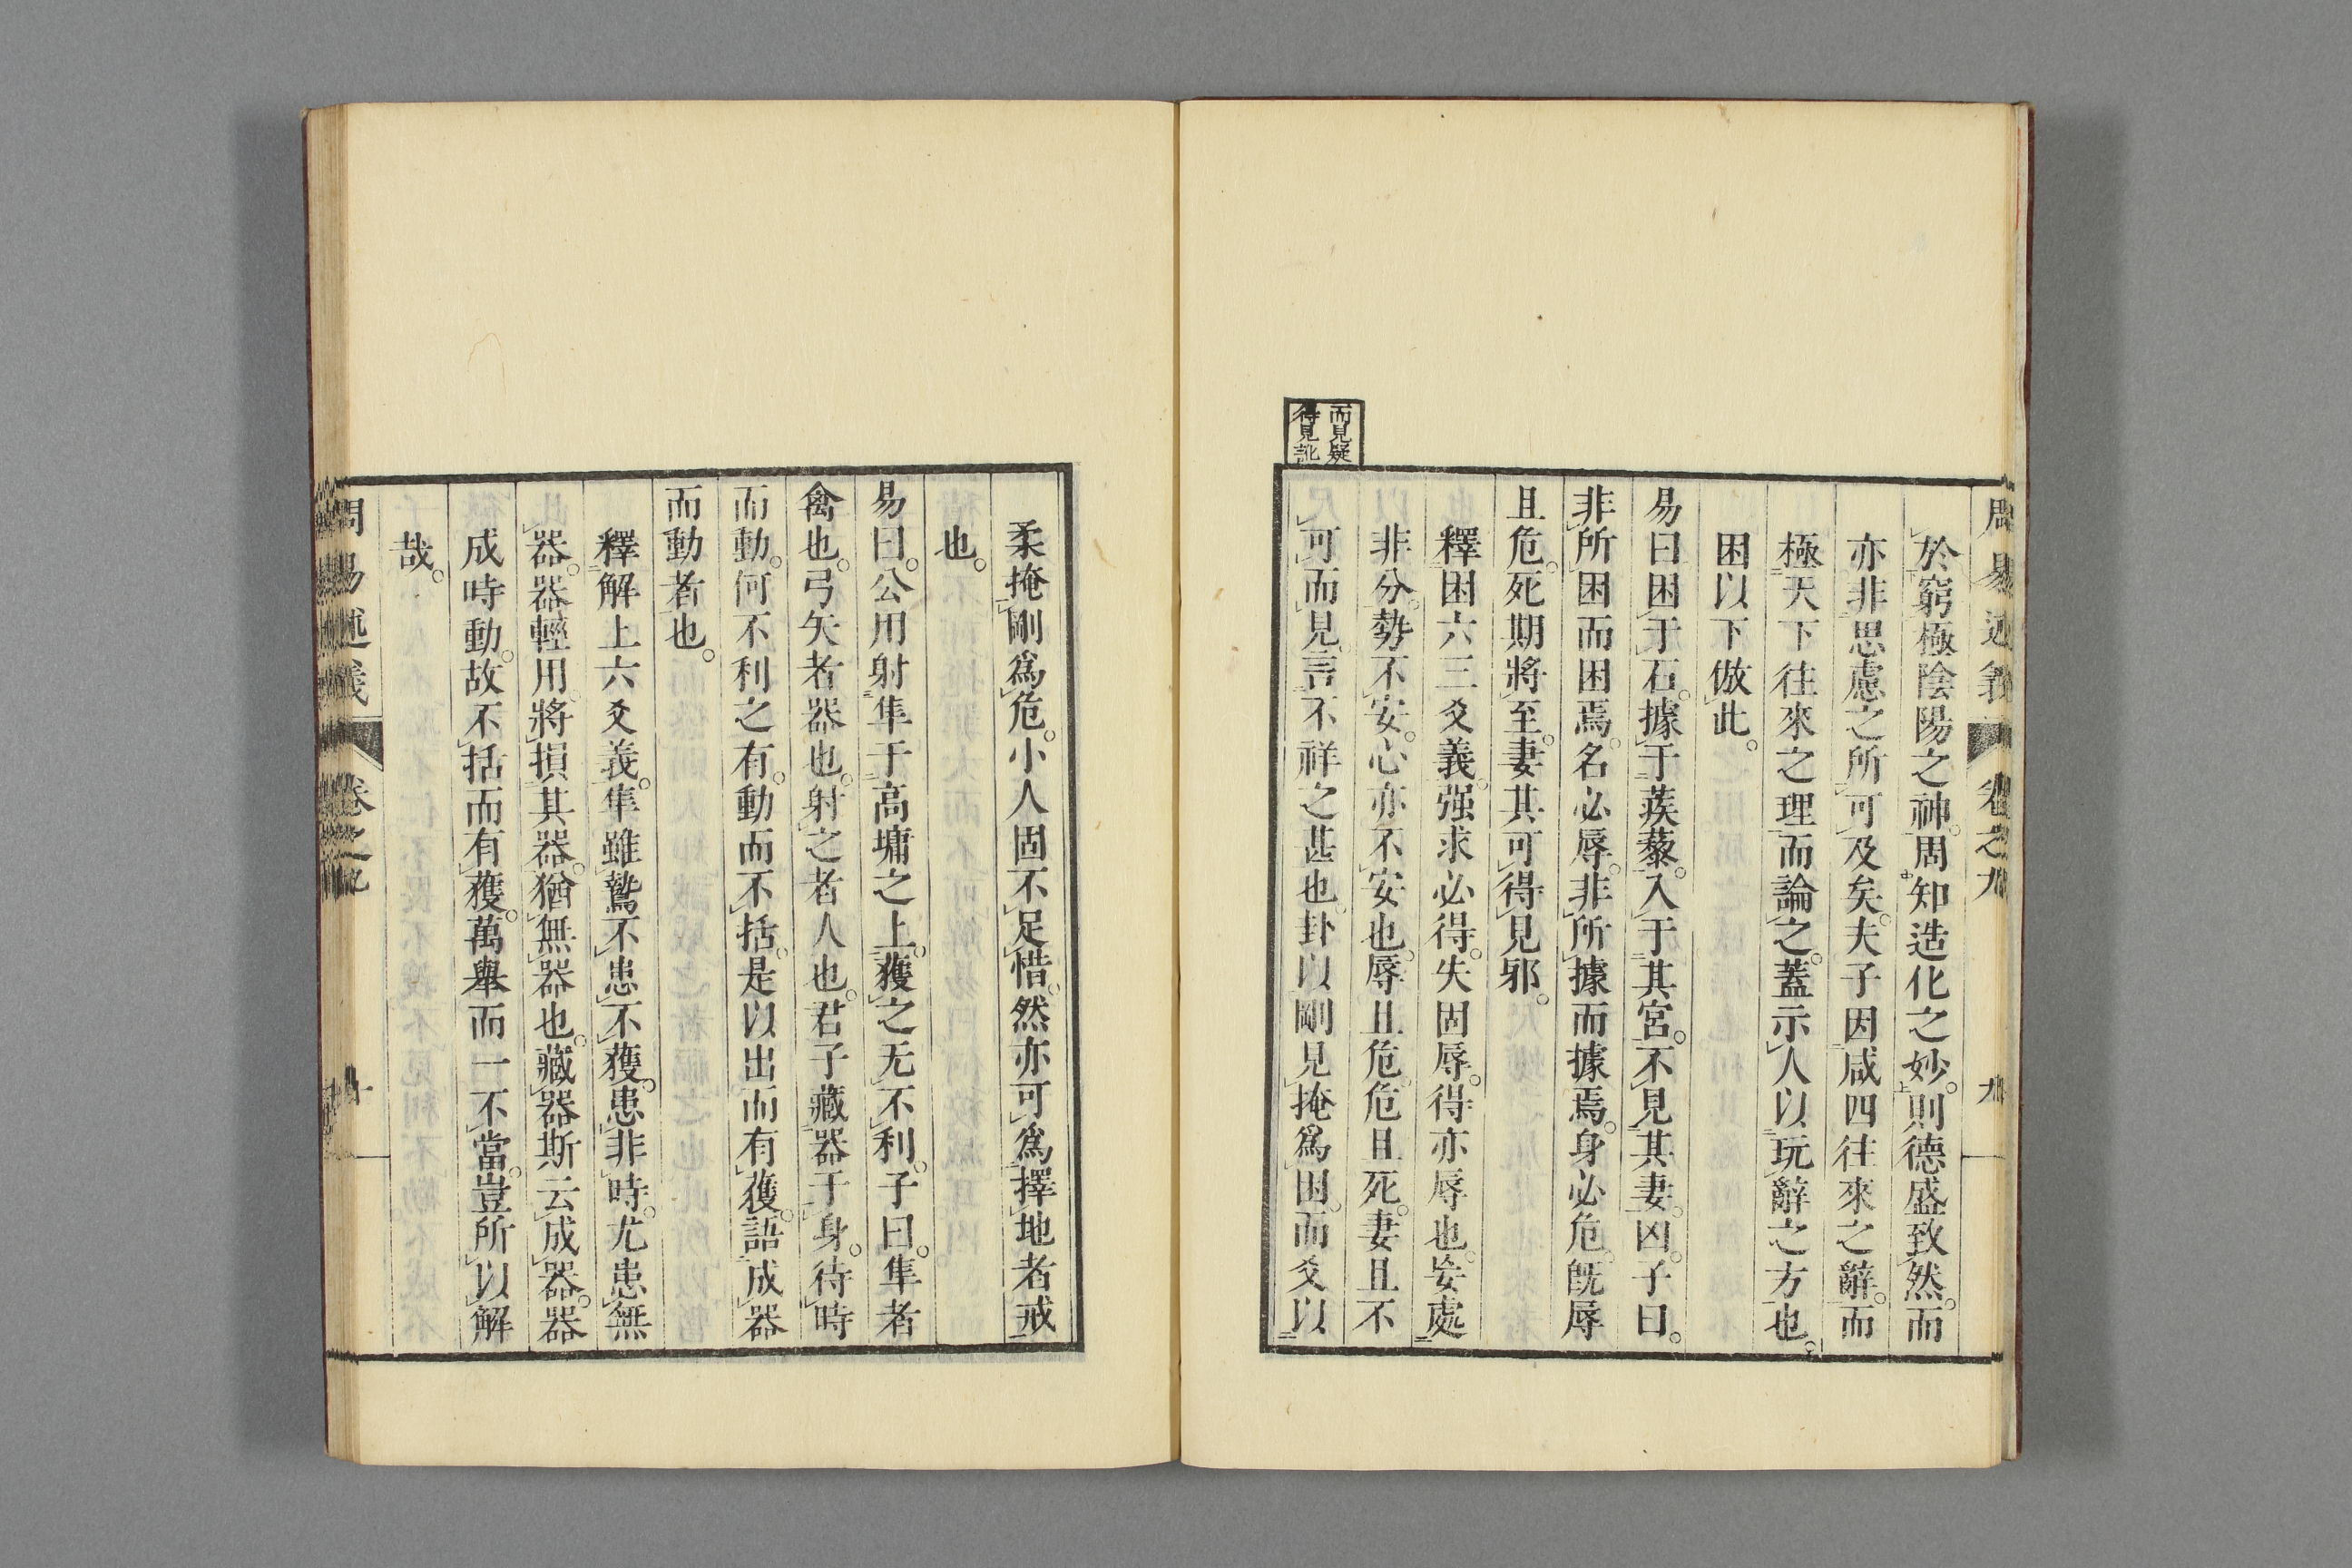 周易述義 卷之九 九
於窮極陰陽之神。周知造化之妙。則德盛致然。而
亦非思慮之所可及矣。夫子因咸四往來之辭。而
極天下往來之理而論之。蓋示人以玩辭之方也。
困以下倣此。
易曰困于石。據于蒺藜。入于其宮。不見其妻。凶。子曰。
非所困而困焉。名必辱。非所據而據焉。身必危。旣辱
且危。死期將至。妻其可得見邪。
釋困六三爻義。强求必得。失固辱。得亦辱也。妄處
非分。勢不安。心亦不安也。辱且危。危且死。妻且不
可而見。言不祥之甚也。卦以剛見掩爲困。而爻以
而見疑
得見訛
柔掩剛爲危。小人固不足惜。然亦可爲擇地者戒
也。
易曰。公用射隼于高墉之上。獲之无不利。子曰。隼者
禽也。弓矢者器也。射之者人也。君子藏器于身。待時
而動。何不利之有。動而不括。是以出而有獲。語成器
而動者也。
釋解上六爻義。隼雖鷙不患不獲。患非時。尤患無
器。器輕用。將損其器。猶無器也。藏器斯云成器。器
成時動。故不括而有獲。萬舉而一不當。豈所以解
哉。
周易述義 卷之九 十